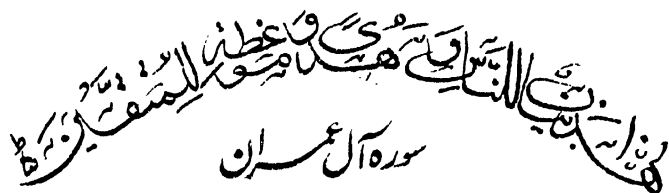 هٰذَا بَيَانٌ لِّلنَّاسِ وَهُدًى وَّمَوْعِظَةٌ لِّلْمُتَّقِينَ
سورہ آل عمران